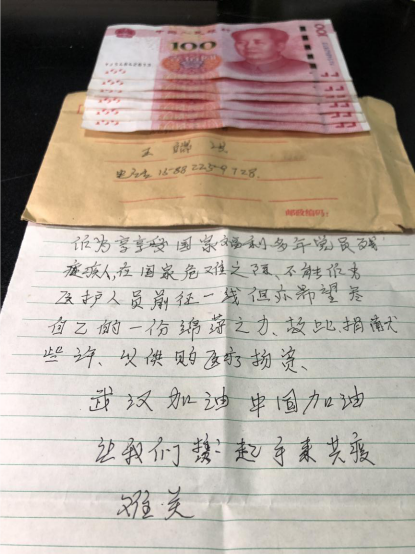 100
王
电话: 15882259728
邮政编码:
作为享享受国家福利多年党员残
疾病人,在国家危难之际、不能作为
医护人员前往一线但亦希望尽
自己的一份绵薄之力、故此、捐献
些许、以供购医疗物资、
武汉加油 中国加油
让我们携起手来共度
难关